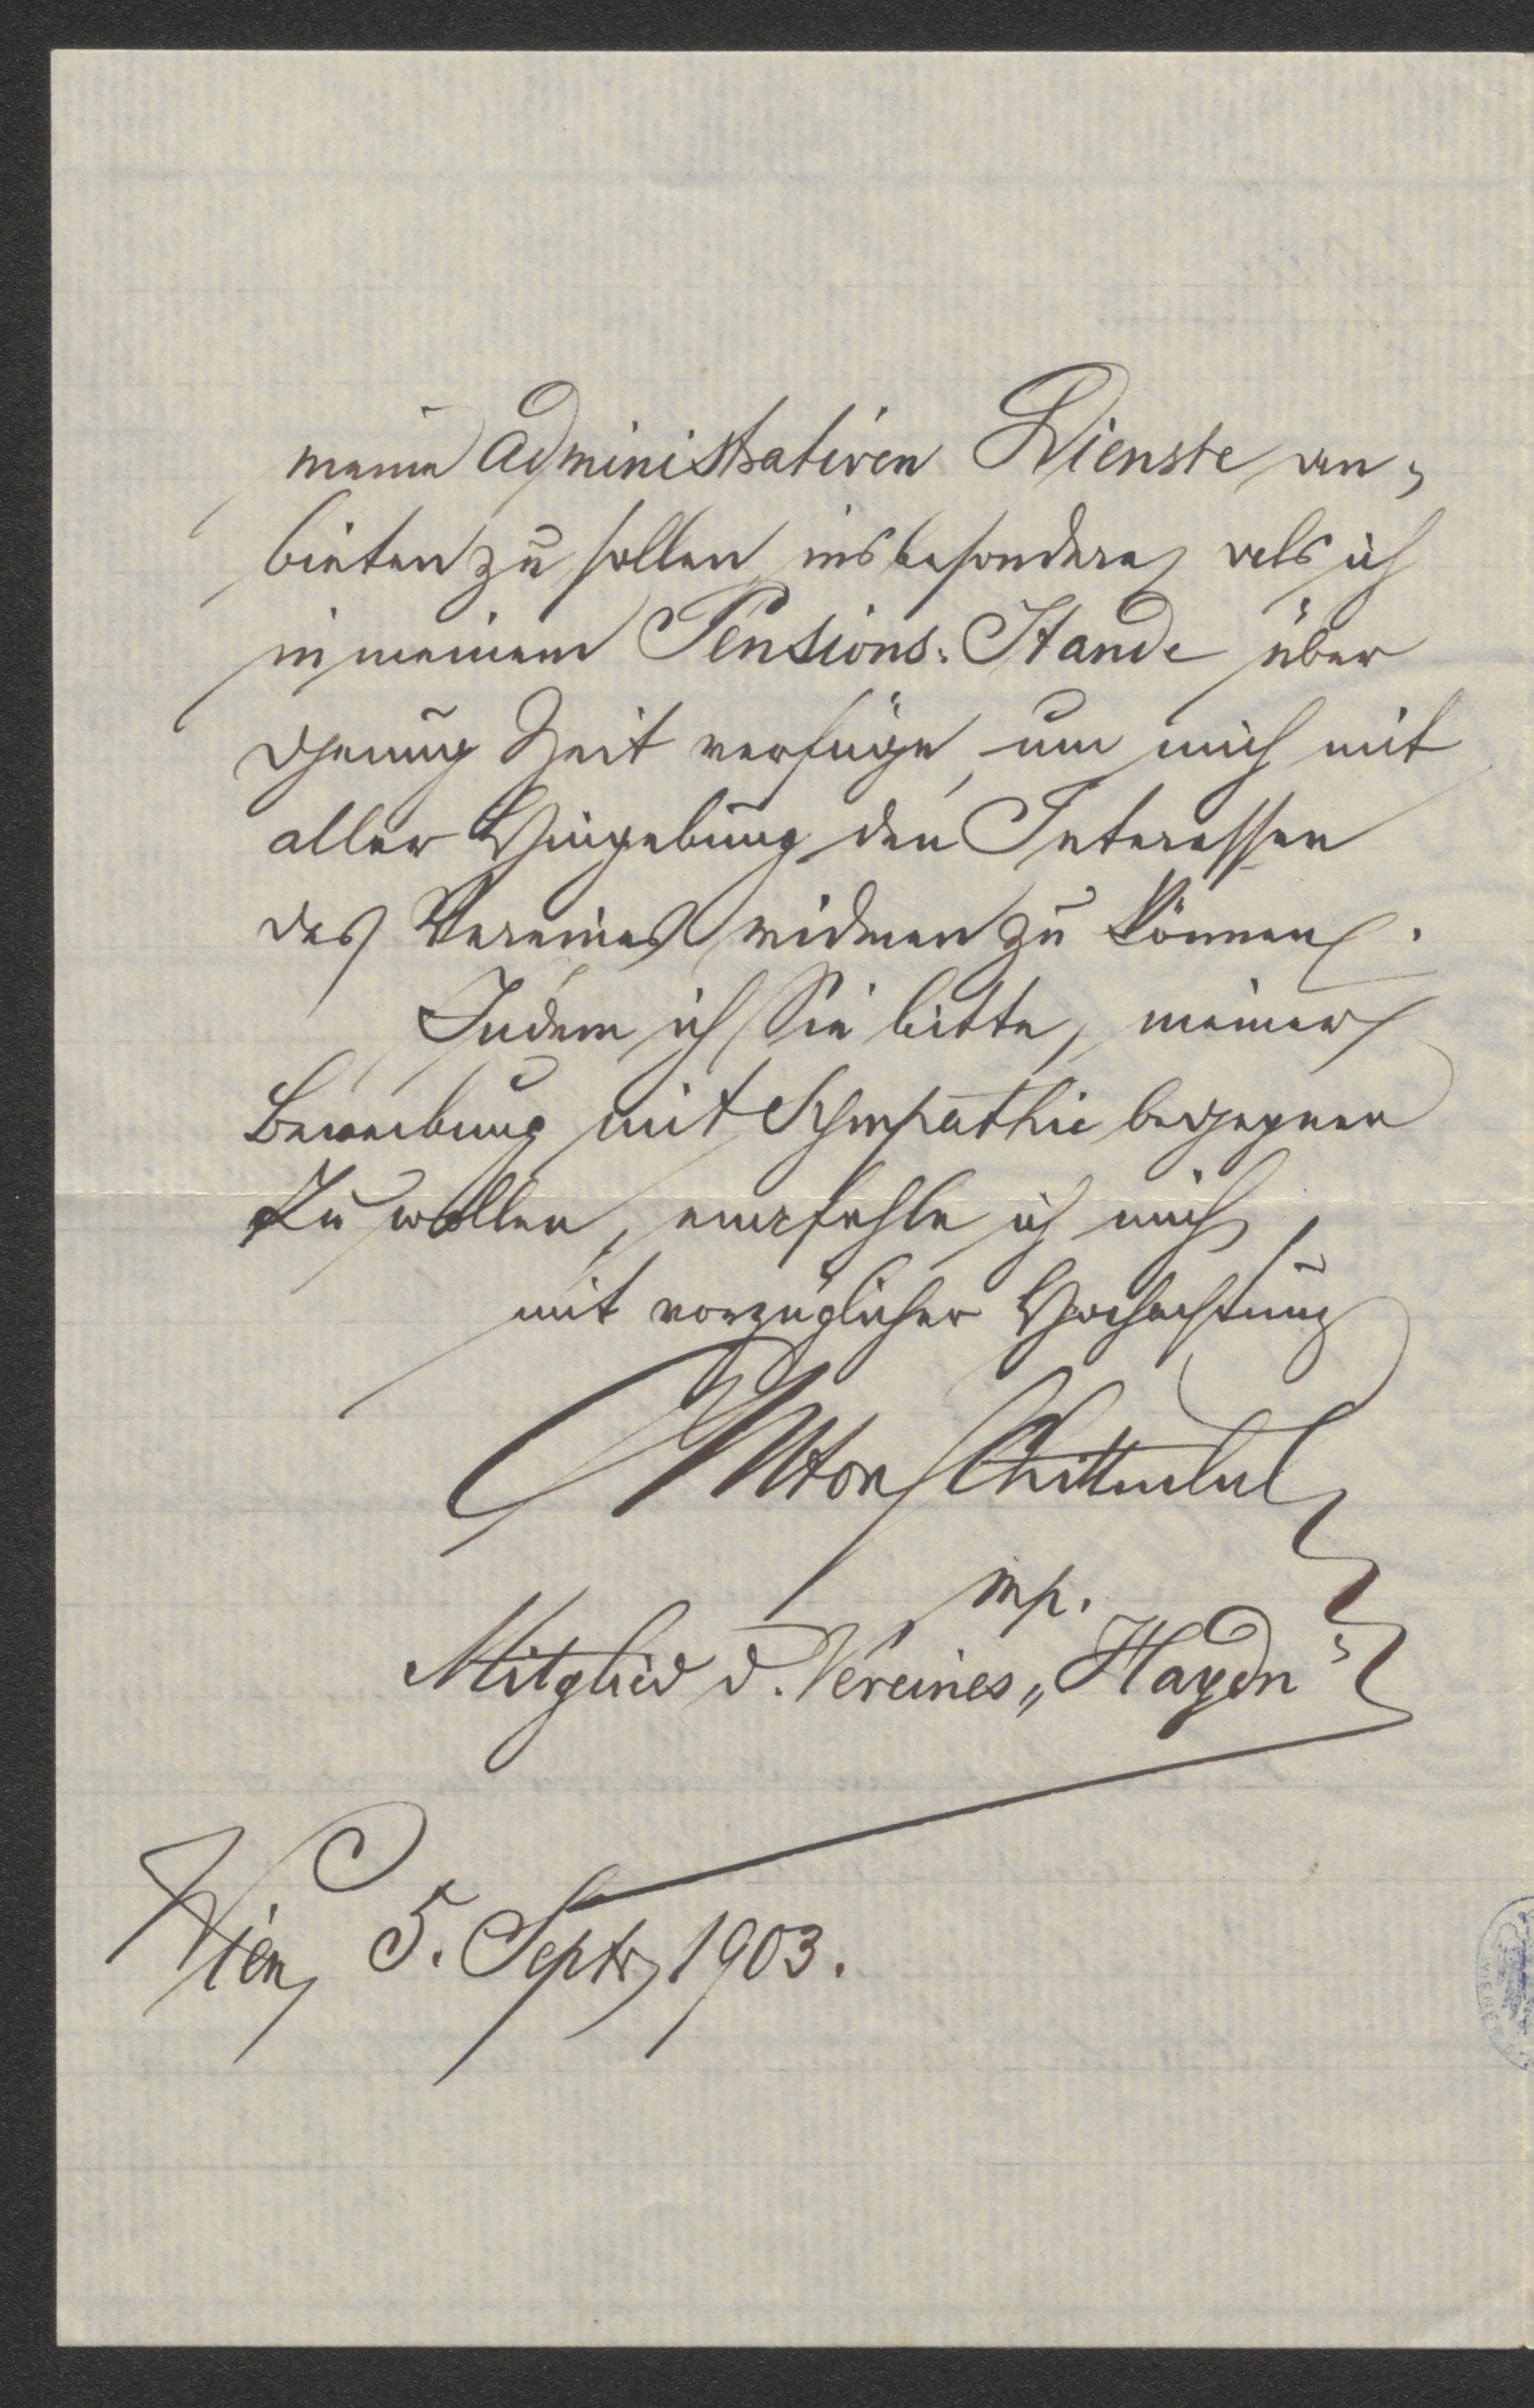 meine administrativen Dienste an-
bieten zu sollen, insbesondere, als ich
in meinem Pensions-Stande über
genug Zeit verfüge, um mich mit
aller Hingebung den Interessen
des Vereines widmen zu können.
Indem ich Sie bitte, meiner
Bewerbung mit Sympathie begegnen
zu wollen, empfehle ich mich
mit vorzüglicher Hochachtung
Anton
mp.
Mitglied d. Vereines „Haydn"
Wien, 5. Septr 1903.